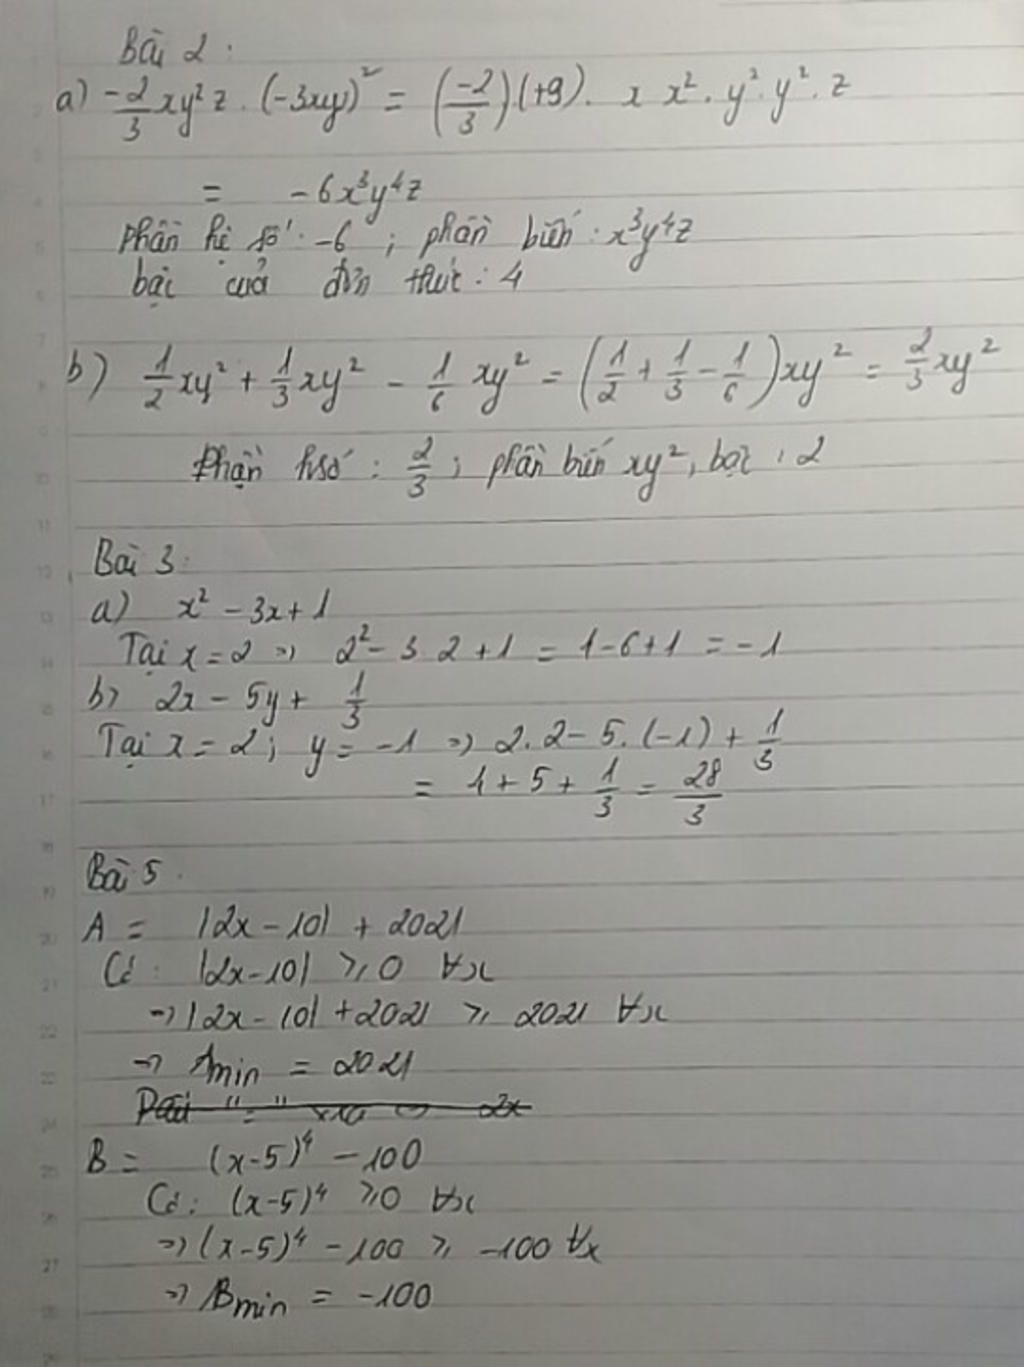 Bài 2:
a) -2/3 xy²z . (-3xy)² = (-2/3)(+9). x x² . y² . y² . z
= -6x³y⁴z
phần hệ số: -6 ; phần biến: x³y⁴z
bậc của đơn thức: 4
b) 1/2 xy² + 1/3 xy² - 1/6 xy² = (1/2 + 1/3 - 1/6)xy² = 2/3 xy²
Phần hsố: 2/3 ; phần biến xy², bậc: 2
Bài 3:
a) x² - 3x + 1
Tại x = 2 => 2² - 3 2 + 1 = 4 - 6 + 1 = -1
b) 2x - 5y + 1/3
Tại x = 2; y = -1 => 2.2 - 5.(-1) + 1/3
= 4 + 5 + 1/3 = 28/3
Bài 5.
A = |2x - 10| + 2021
Có: |2x - 10| ≥ 0 ∀x
=> |2x - 10| + 2021 ≥ 2021 ∀x
=> Amin = 2021
Dấu "=" 2x
B = (x-5)⁴ - 100
Có: (x-5)⁴ ≥ 0 ∀x
=> (x-5)⁴ - 100 ≥ -100 ∀x
=> Bmin = -100